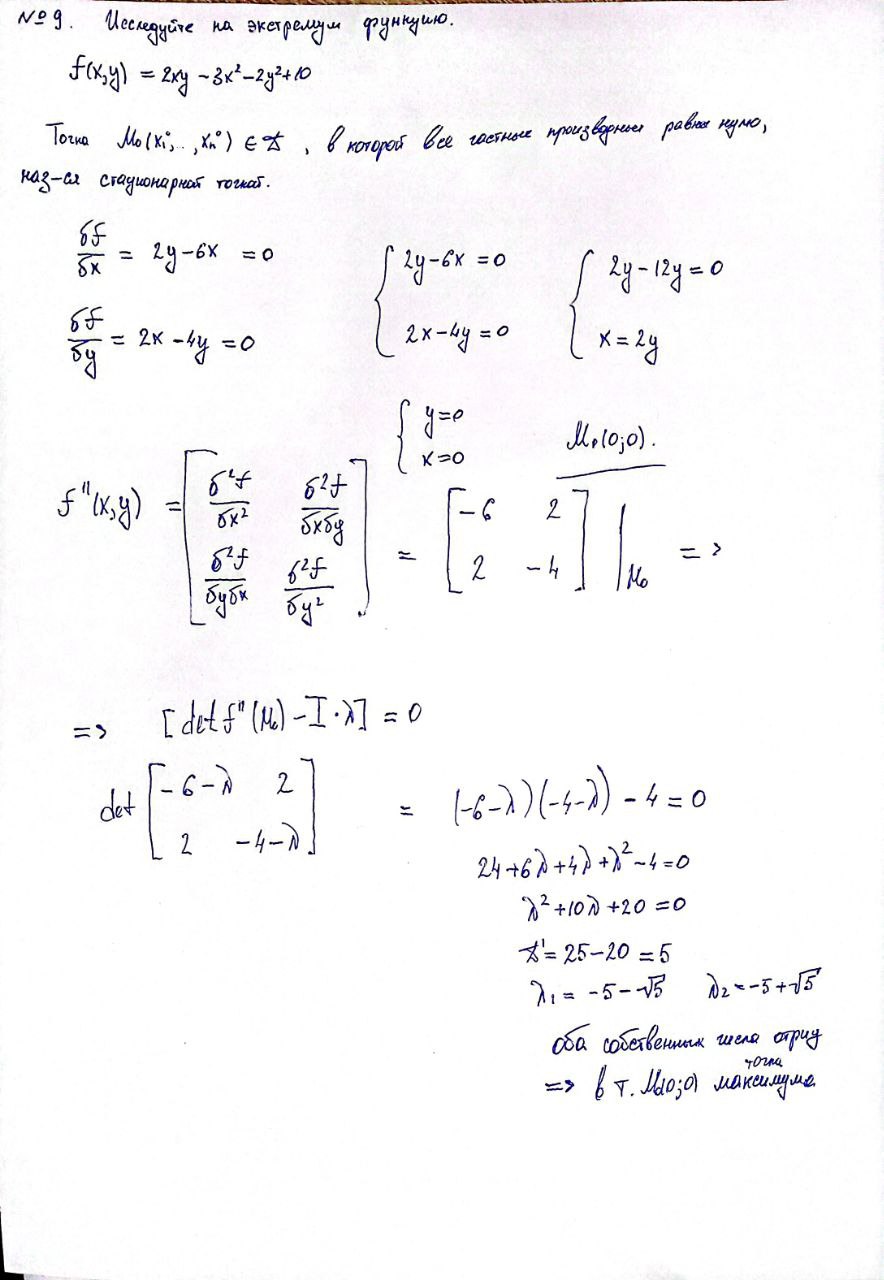 № 9. Исследуйте на экстремум функцию.
f(x,y) = 2xy - 3x² - 2y² + 10
Точка M₀(x₁°,..,xₙ°) ∈ D, в которой все частные производные равны нулю,
наз-ся стационарной точкой.
δf/δx = 2y - 6x = 0
δf/δy = 2x - 4y = 0
{ 2y - 6x = 0
2x - 4y = 0
{ 2y - 12y = 0
x = 2y
{ y = 0
x = 0
M₀(0;0).
f''(x,y) = [ δ²f/δx² δ²f/δxδy
δ²f/δyδx δ²f/δy² ]
= [ -6 2
2 -4 ] |M₀ =>
=> [det f''(M₀) - I·λ] = 0
det [ -6-λ 2
2 -4-λ ]
= (-6-λ)(-4-λ) - 4 = 0
24 + 6λ + 4λ + λ² - 4 = 0
λ² + 10λ + 20 = 0
D' = 25 - 20 = 5
λ₁ = -5 - √5 λ₂ = -5 + √5
оба собственных числа отриц
=> в т. M₀(0;0) точка максимума